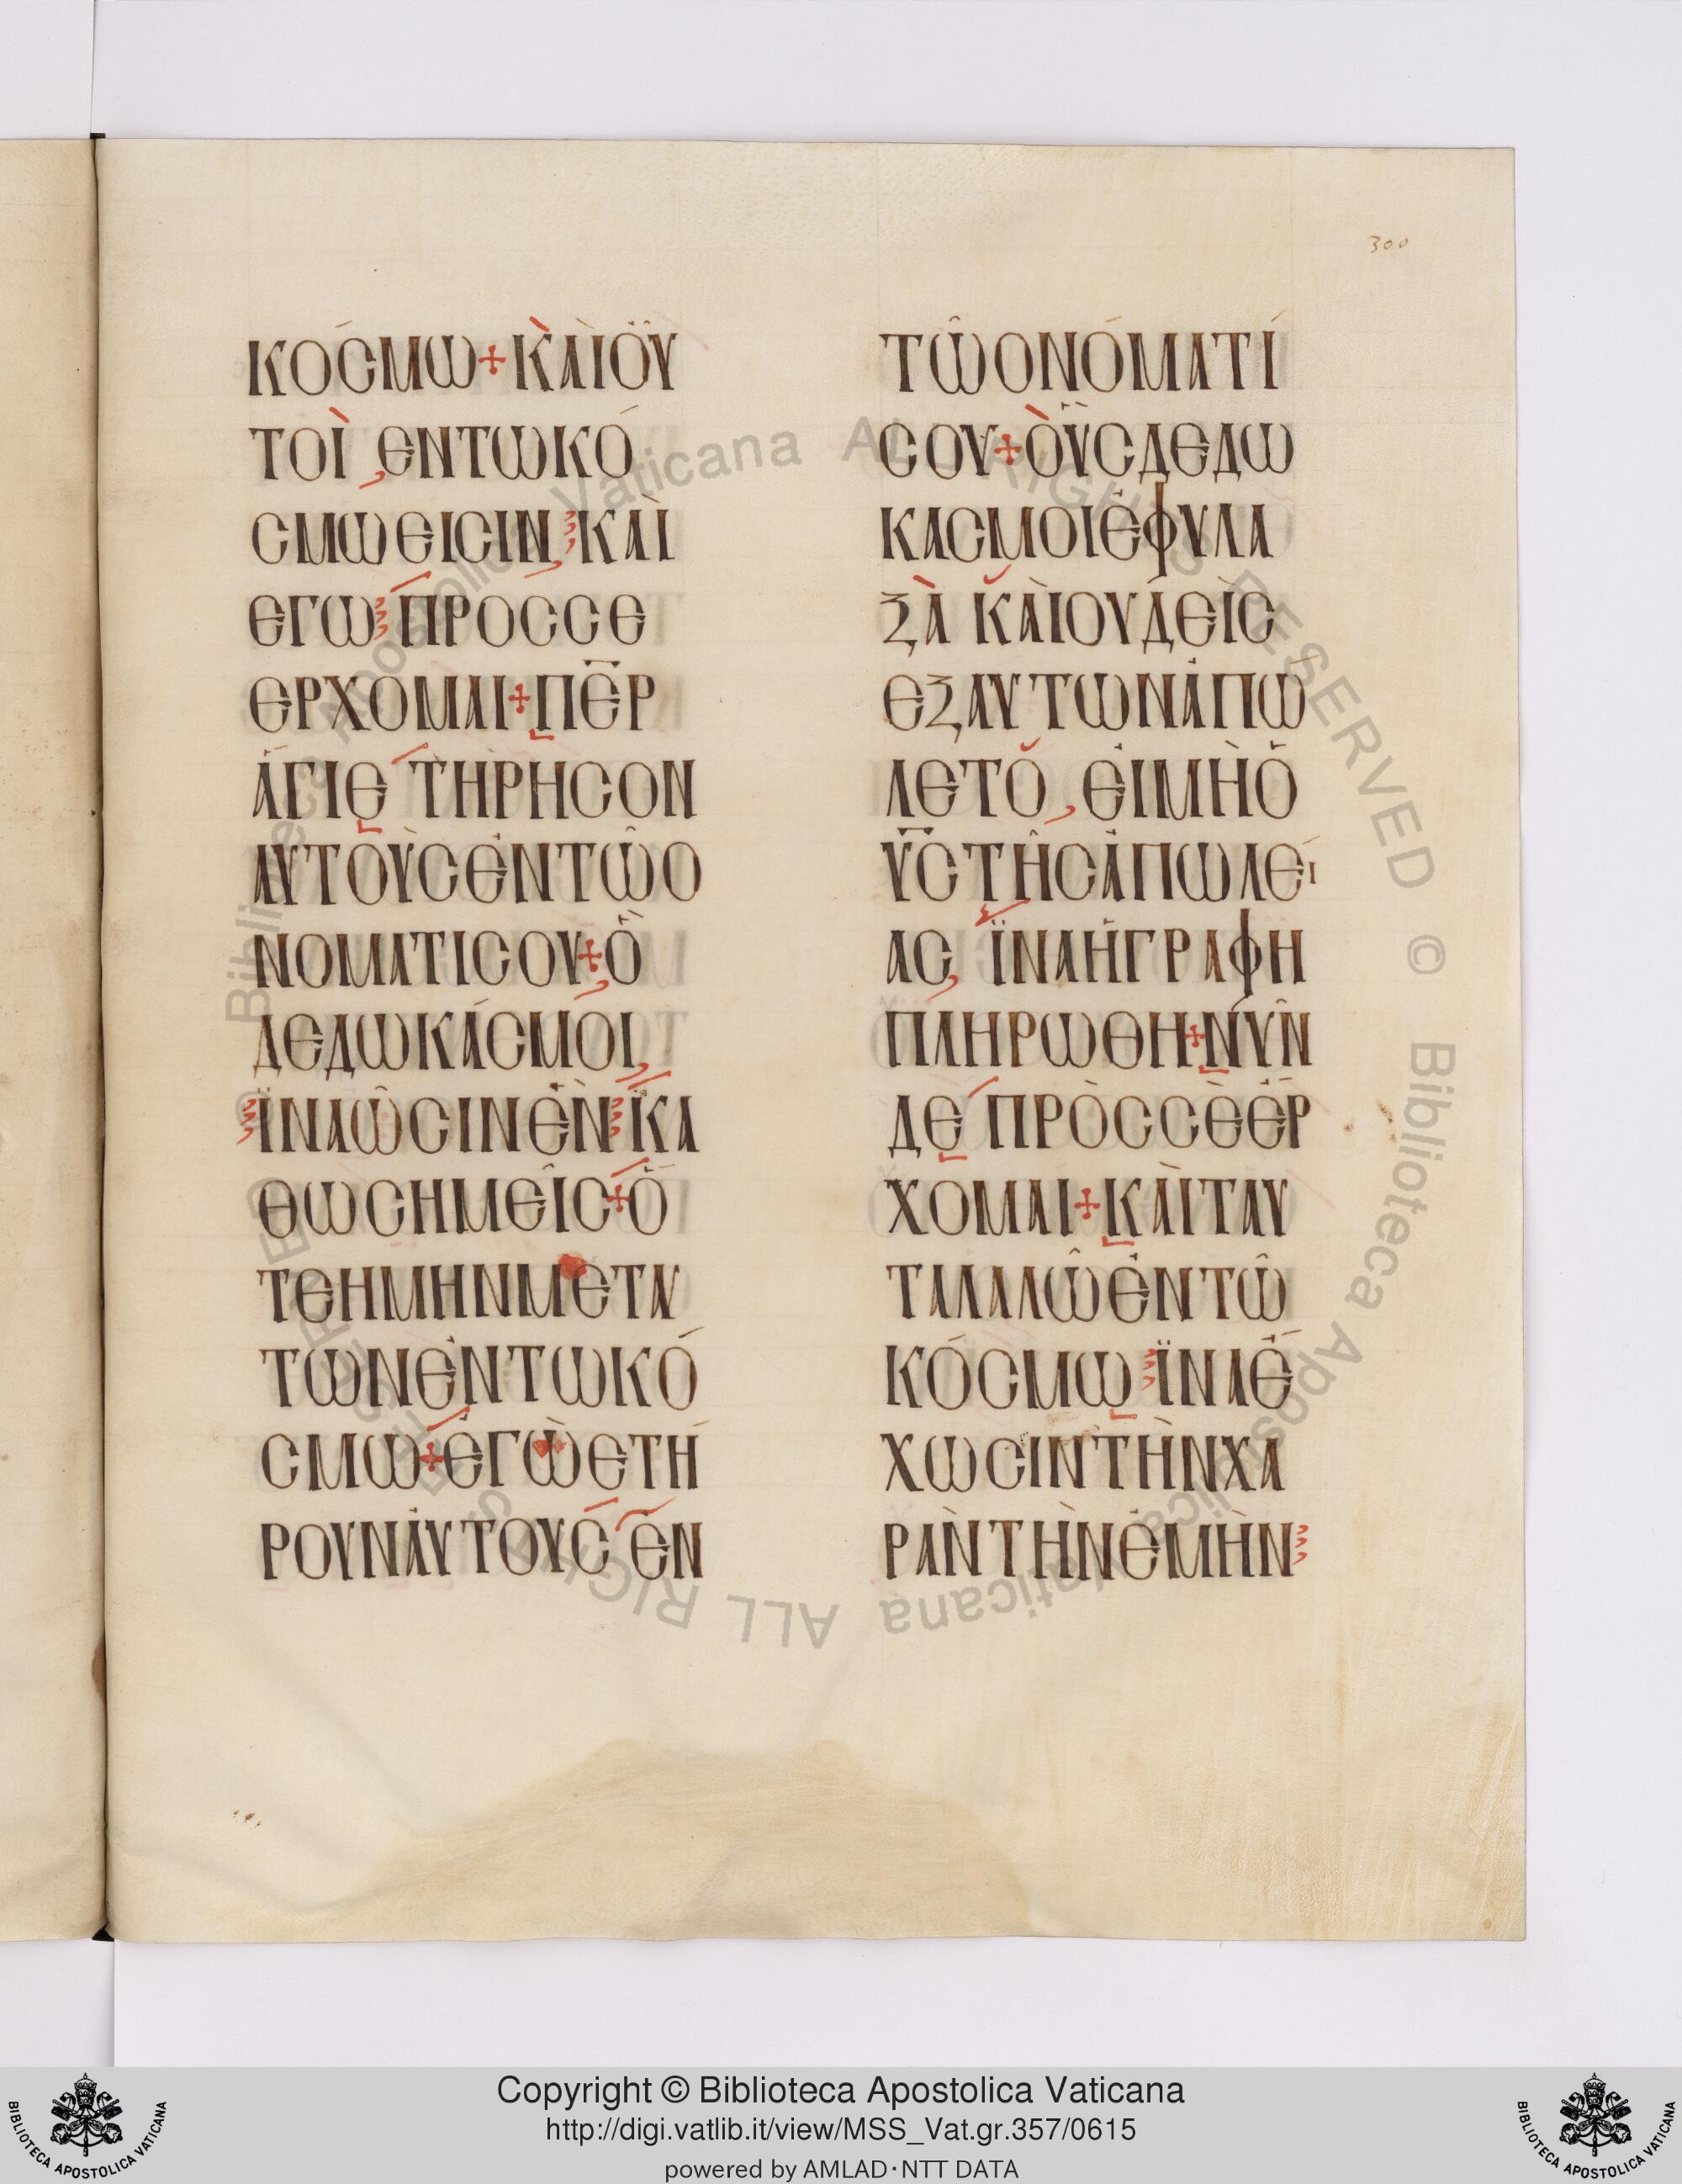 300
ΚΟΣΜΩ+ΚΑΙΟΥ
ΤΟΙ,ΕΝΤΩΚΟ
CΜΩΕΙCΙΝ ΚΑΙ
ΕΓΩ ΠΡΟCCΕ
ΕΡΧΟΜΑΙ+ΠΕΡ
ΑΓΙΕ ΤΗΡΗCΟΝ
ΑΥΤΟΥCΕΝΤΩΟ
ΝΟΜΑΤΙCΟΥ+Ο
ΔΕΔΩΚΑCΜΟΙ,
ΪΝΑΩCΙΝΕΝ ΚΑ
ΘΩCΗΜΕΙC+Ο
ΤΕΗΜΗΝΜΕΤΑΥ
ΤΩΝΕΝΤΩΚΟ
CΜΩ+ΕΓΩΕΤΗ
ΡΟΥΝΑΥΤΟΥC ΕΝ
ΤΩΟΝΟΜΑΤΙ
CΟΥ+ΟΥCΔΕΔΩ
ΚΑCΜΟΙΕΦΥΛΑ
ΞΑ ΚΑΙΟΥΔΕΙC
ΕΞΑΥΤΩΝΑΠΩ
ΛΕΤΟ,ΕΙΜΗΟ
ΥC ΤΗCΑΠΩΛΕΙ
ΑC, ΪΝΑΗΓΡΑΦΗ
ΠΛΗΡΩΘΗ+ΝΥΝ
ΔΕ ΠΡΟCCΕΕΡ
ΧΟΜΑΙ+ΚΑΙΤΑΥ
ΤΑΛΑΛΩΕΝΤΩ
ΚΟCΜΩ ΪΝΑΕ
ΧΩCΙΝΤΗΝΧΑ
ΡΑΝΤΗΝΕΜΗΝ
Copyright © Biblioteca Apostolica Vaticana
http://digi.vatlib.it/view/MSS_Vat.gr.357/0615
powered by AMLAD·NTT DATA
BIBLIOTECA APOSTOLICA VATICANA
BIBLIOTECA APOSTOLICA VATICANA